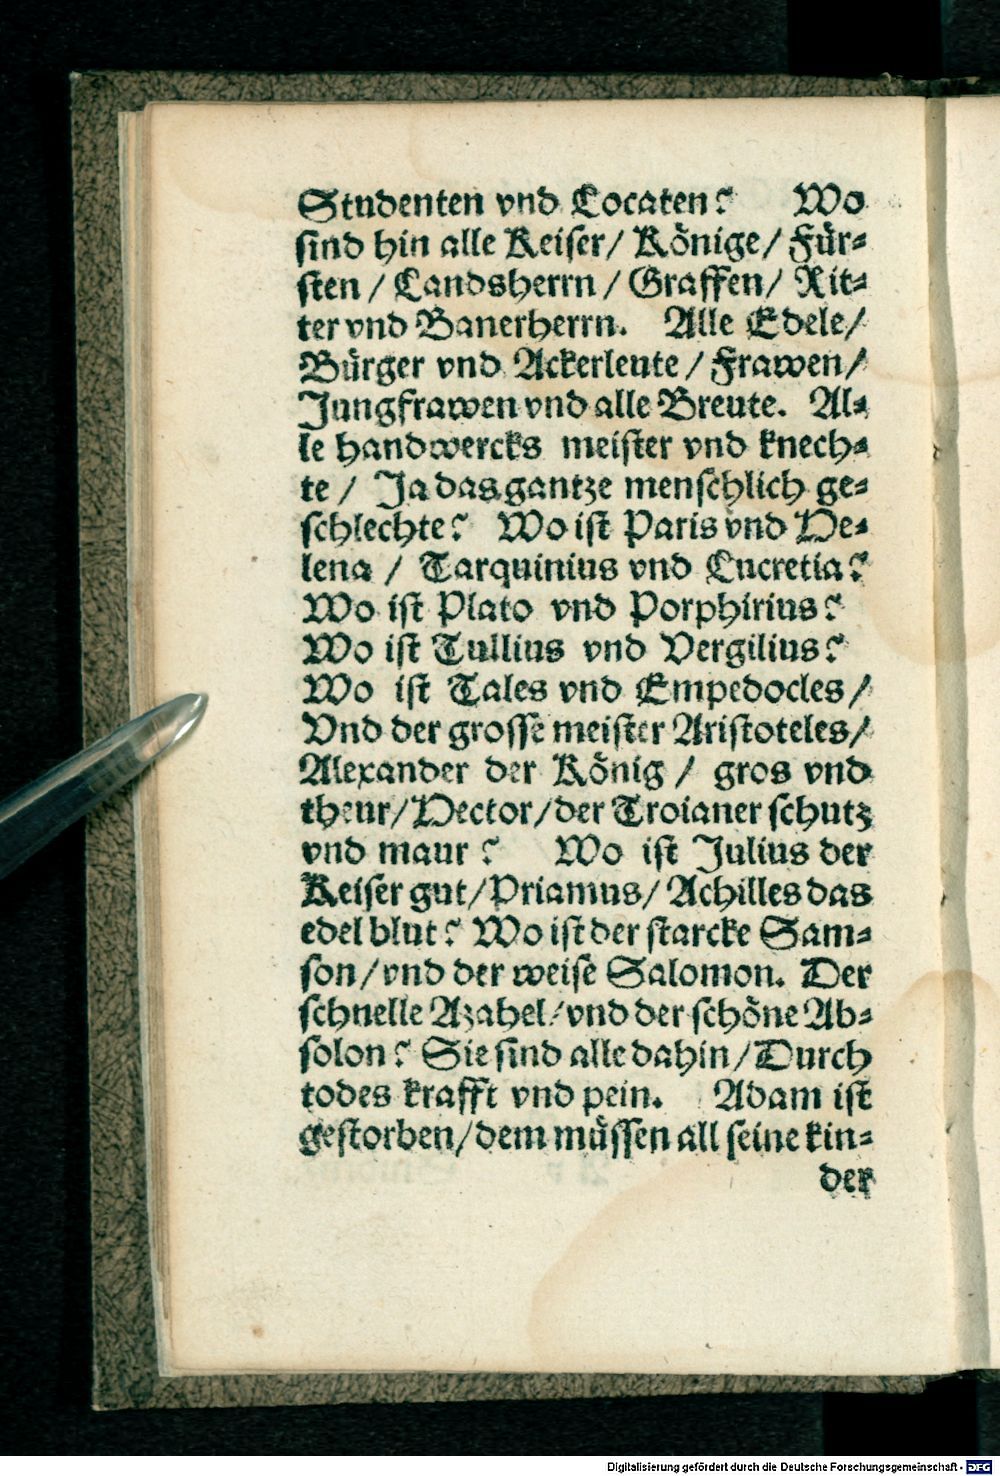 Studenten vnd Locaten? Wo
sind hin alle Keiser/ Könige/ Für-
sten / Landsherrn / Graffen/ Rit-
ter vnd Banerherrn. Alle Edele/
Bürger vnd Ackerleute / Frawen/
Jungfrawen vnd alle Breute. Al-
le handwercks meister vnd knech-
te / Ja das gantze menschlich ge-
schlechte? Wo ist Paris vnd He-
lena / Tarquinius vnd Lucretia?
Wo ist Plato vnd Porphirius?
Wo ist Tullius vnd Vergilius?
Wo ist Tales vnd Empedocles/
Vnd der grosse meister Aristoteles/
Alexander der König / gros vnd
theur/Hector/der Troianer schutz
vnd maur? Wo ist Julius der
Keiser gut/Priamus/ Achilles das
edel blut? Wo ist der starcke Sam-
son/vnd der weise Salomon. Der
schnelle Azahel/vnd der schöne Ab-
solon? Sie sind alle dahin/Durch
todes krafft vnd pein. Adam ist
gestorben/dem müssen all seine kin-
der
Digitalisierung gefördert durch die Deutsche Forschungsgemeinschaft - DFG